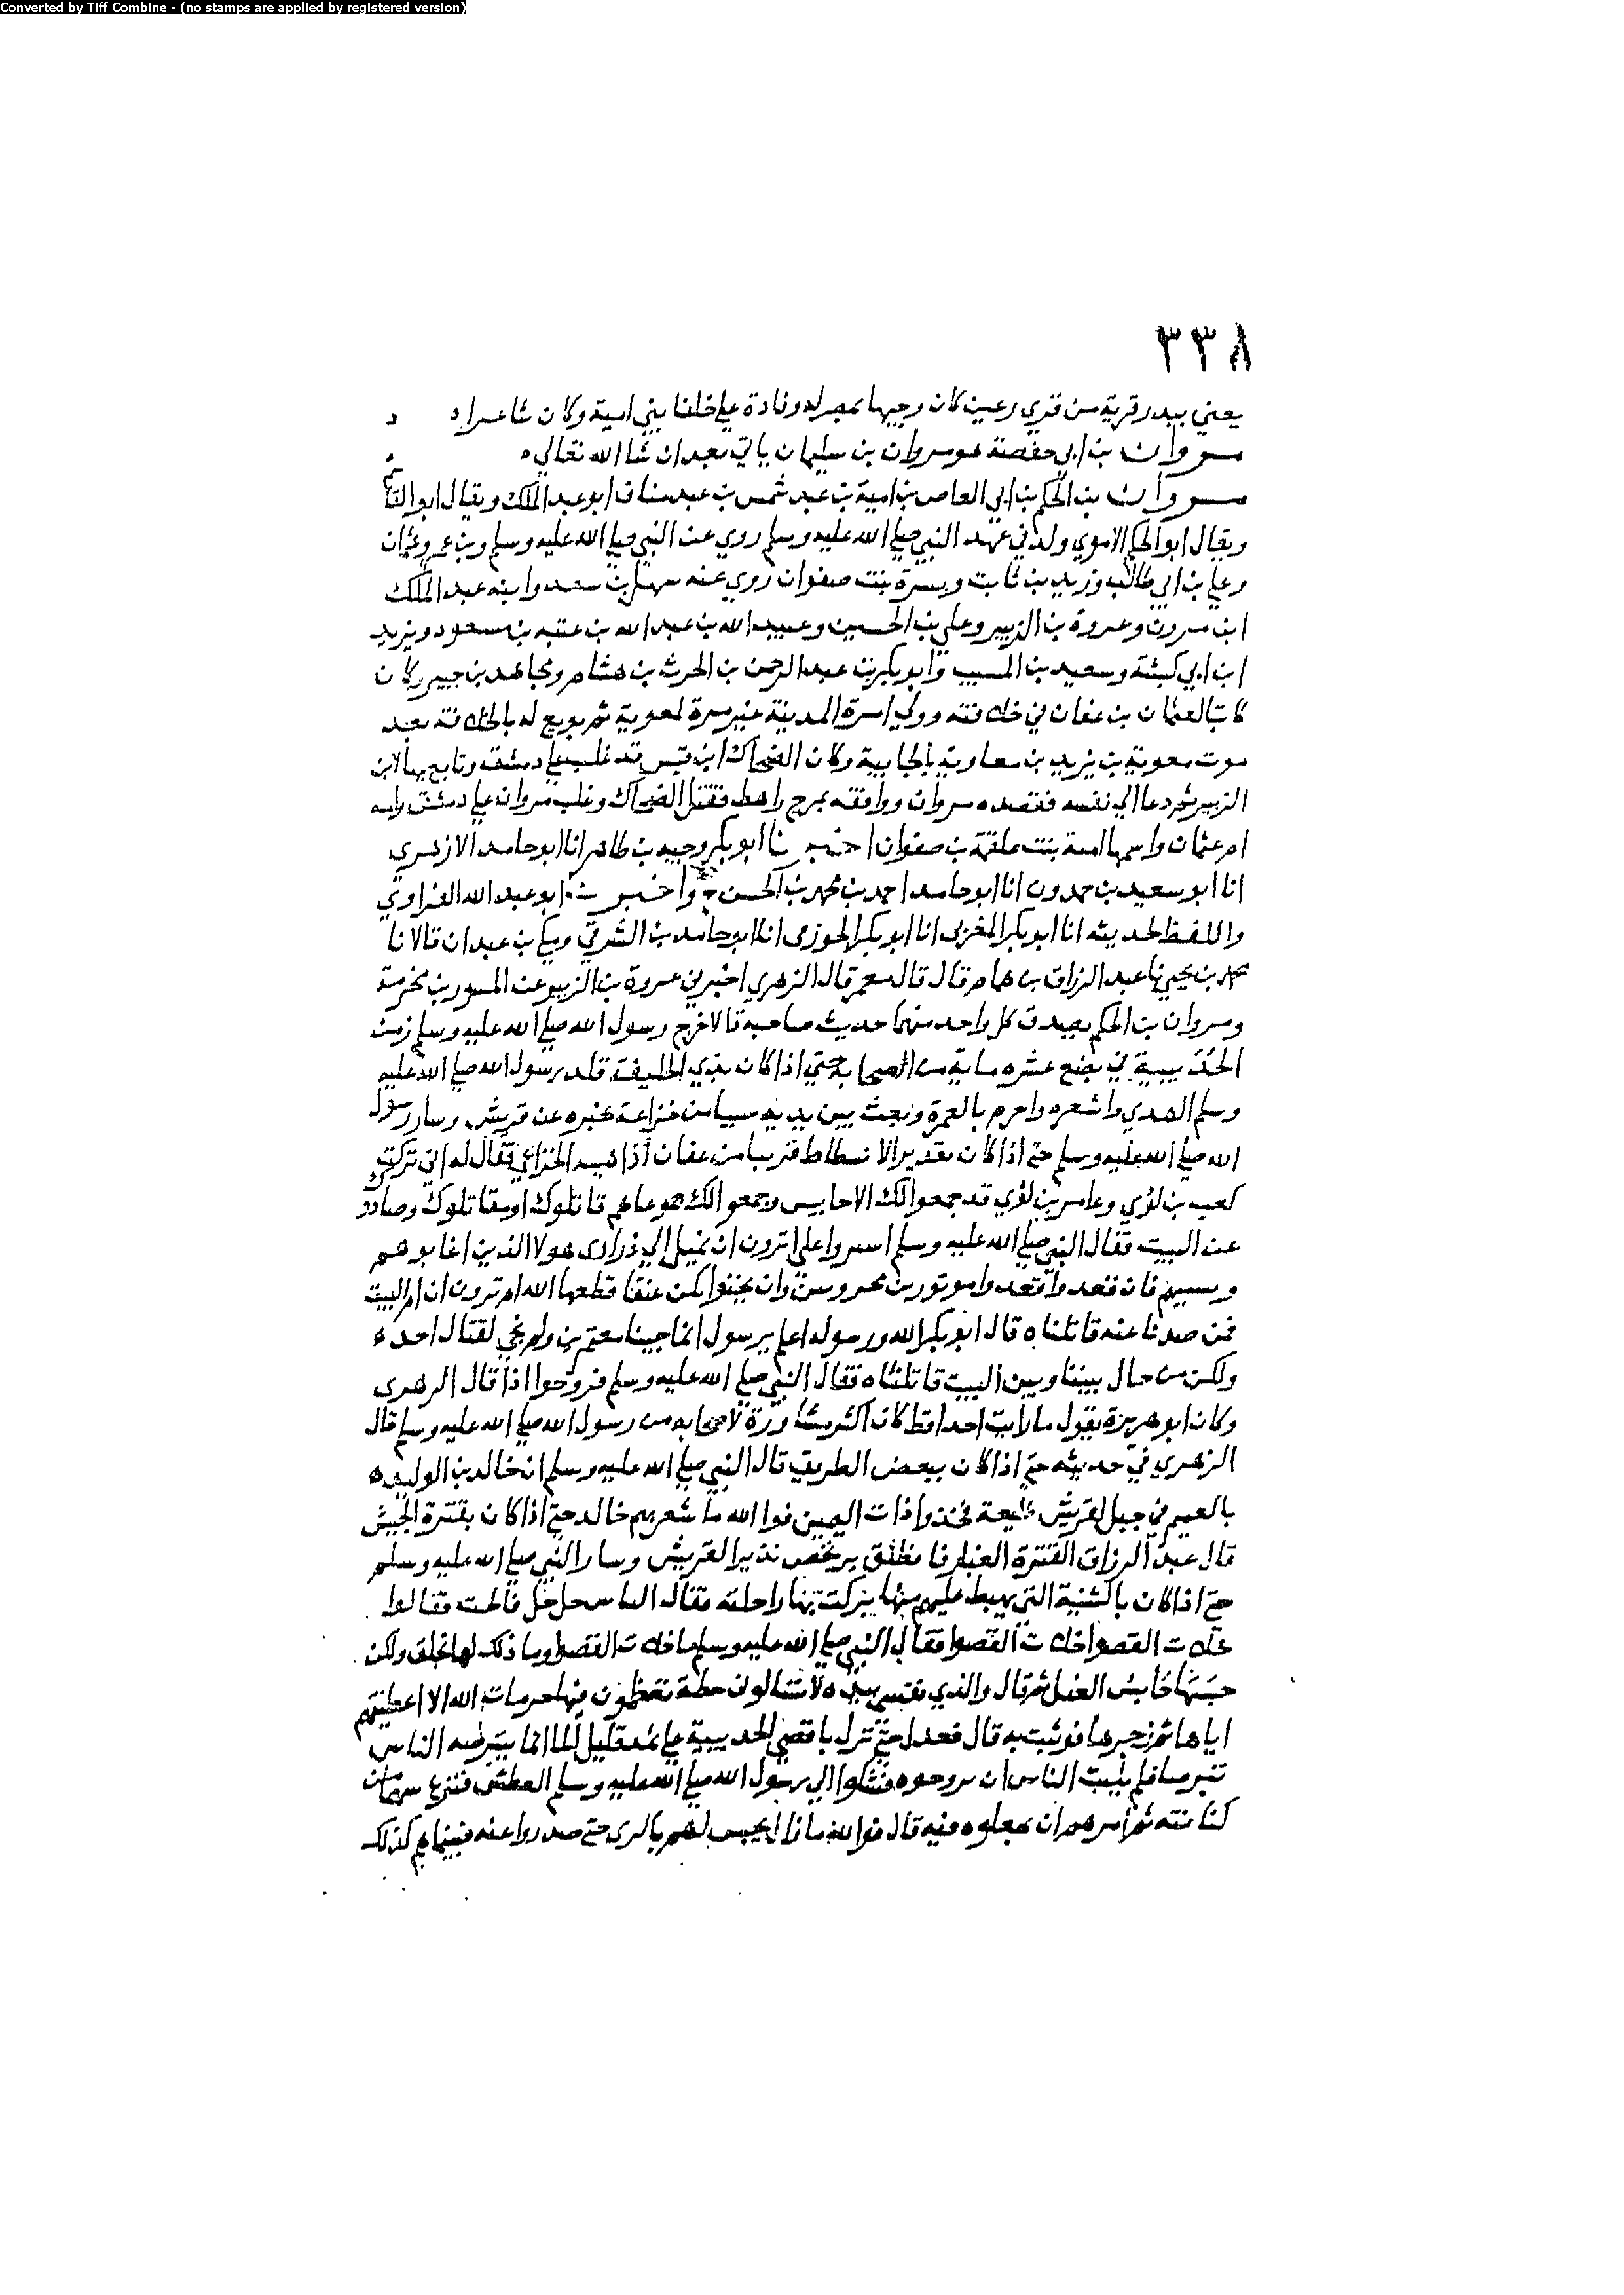 Converted by Tiff Combine - (no stamps are applied by registered version)
٣٣٨
يعني ببدر قرية من قري رعين كان وجيها بمصر له وفادة علي خلفا بني امية وكان شاعرا
مروان بن ابي حفصة هو مروان بن سليمان ياتي بعد ان شا الله تعالي ه
مروان بن الحكم بن ابي العاص بن امية بن عبد شمس بن عبد مناف ابو عبد الملك ويقال ابو القاسم
ويقال ابو الحكم الاموي ولد في عهد النبي صلي الله عليه وسلم روي عن النبي صلي الله عليه وسلم وعن عمر وعثمان
وعلي بن ابي طالب وزيد بن ثابت وبسرة بنت صفوان روي عنه سهل بن سعد وابنه عبد الملك
ابن مرون وعروة بن الزبير وعلي بن الحسين وعبيد الله بن عبد الله بن عتبه بن مسعود ويزيد
ابن ابي كبشة وسعيد بن المسيب وابو بكر بن عبد الرحمن بن الحرث بن هشام ومجاهد بن جبير وكان
كاتبا لعثمان بن عفان في خلافته وولي امرة المدينة غير مرة لمعوية ثم بويع له بالخلافة بعد
موت معوية بن يزيد بن معاوية بالجابية وكان الضحاك ابن قيس قد غلب علي دمشق وتابع بها لابن
الزبير ثم دعا الي نفسه فقصده مروان وواقعه بمرج راهط فقتل الضحاك وغلب مروان علي دمشق وامه
ام عثمان واسمها امنة بنت علقمة بن صفوان اخبرنا ابو بكر وجيه بن طاهر انا ابو حامد الازهري
انا ابو سعيد بن حمدون انا ابو حامد احمد بن محمد بن الحسن ح واخبرنا ابو عبد الله الفراوي
واللفظ لحديثه انا ابو بكر المغربي انا ابو بكر الجوزقي انا ابو حامد بن الشرقي ومكي بن عبدان قالا نا
محمد بن يحيي نا عبد الرزاق بن همام قال قال معمر قال الزهري اخبرني عروة بن الزبير عن المسور بن مخرمة
ومروان بن الحكم يصدق كل واحد منهما حديث صاحبه قالا خرج رسول الله صلي الله عليه وسلم زمن
الحديبية في بضع عشره ماية من اصحابه حتي اذا كان بذي الحليفة قلد رسول الله صلي الله عليه
وسلم الهدي واشعره واحرم بالعمرة وبعث بين يديه عينا من خزاعة يخبره عن قريش وسار رسول
الله صلي الله عليه وسلم حتي اذا كان بغدير الاشطاط قريبا من عسفان اتاه عينه الخزاعي فقال له اني تركت
كعب بن لؤي وعامر بن لؤي قد جمعوا لك الاحابيس وجمعوا لك جموعا وهم قاتلوك او مقاتلوك وصادو
عن البيت فقال النبي صلي الله عليه وسلم اشيروا علي اترون ان نميل الي ذراري هولا الذين اعانوهم
فنسبيهم فان قعدوا قعدوا موتورين محروبين وان يجئوا تكن عنقا قطعها الله ام ترون ان نام البيت
فمن صدنا عنه قاتلناه قال ابو بكر الله ورسوله اعلم يرسول انما جينا معتمرين ولم نجي لقتال احد ه
ولكن من حال بيننا وبين البيت قاتلناه فقال النبي صلي الله عليه وسلم فروحوا اذا قال الزهري
وكان ابو هريرة يقول ما رايت احدا قط كان اكثر مشاورة لاصحابه من رسول الله صلي الله عليه وسلم قال
الزهري في حديثه حتي اذا كان ببعض الطريق قال النبي صلي الله عليه وسلم ان خالد بن الوليد ه
بالغميم في خيل لقريش طليعة فخذوا ذات اليمين فوا الله ما شعر بهم خالد حتي اذا كان بقترة الجيش
قال عبد الرزاق القترة الغبار فانطلق يركض نذيرا لقريش وسار النبي صلي الله عليه وسلم
حتي اذا كان بالثنية التي يهبط عليهم منها بركت بها راحلته فقال الناس حل حل فالحت فقالوا
خلات القصوا خلات القصوا فقال النبي صلي الله عليه وسلم ما خلات القصوا وما ذلك لها بخلق ولكن
حبسها حابس الفيل ثم قال والذي نفسي بيده لا تسالون خطة تعظمون فيها حرمات الله الا اعطيتهم
اياها ثم زجرها فوثبت به قال فعدل حتي نزل باقصي الحديبية علي ثمد قليل الما انما يتبرضه الناس
تبرضا فلم يلبث الناس ان نزحوه فشكوا الي رسول الله صلي الله عليه وسلم العطش فنزع سهما من
كنانته ثم امرهم ان يجعلوه فيه قال فوا الله ما زال يجيش لهم بالري حتي صدروا عنه فبينما هم كذلك